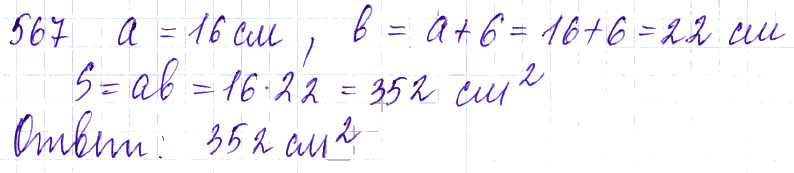 567 a = 16 см, в = a + 6 = 16 + 6 = 22 см
S = aв = 16 · 22 = 352 см²
Ответ: 352 см²